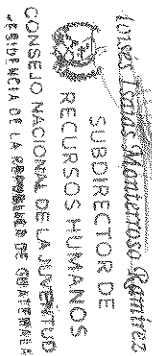 Moisés Isaías Monterroso Ramírez
SUBDIRECTOR DE
RECURSOS HUMANOS
CONSEJO NACIONAL DE LA JUVENTUD
PRESIDENCIA DE LA REPÚBLICA DE GUATEMALA